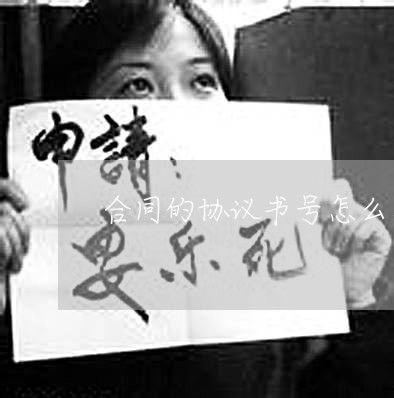 申請：
合同的协议书号怎么
安乐死